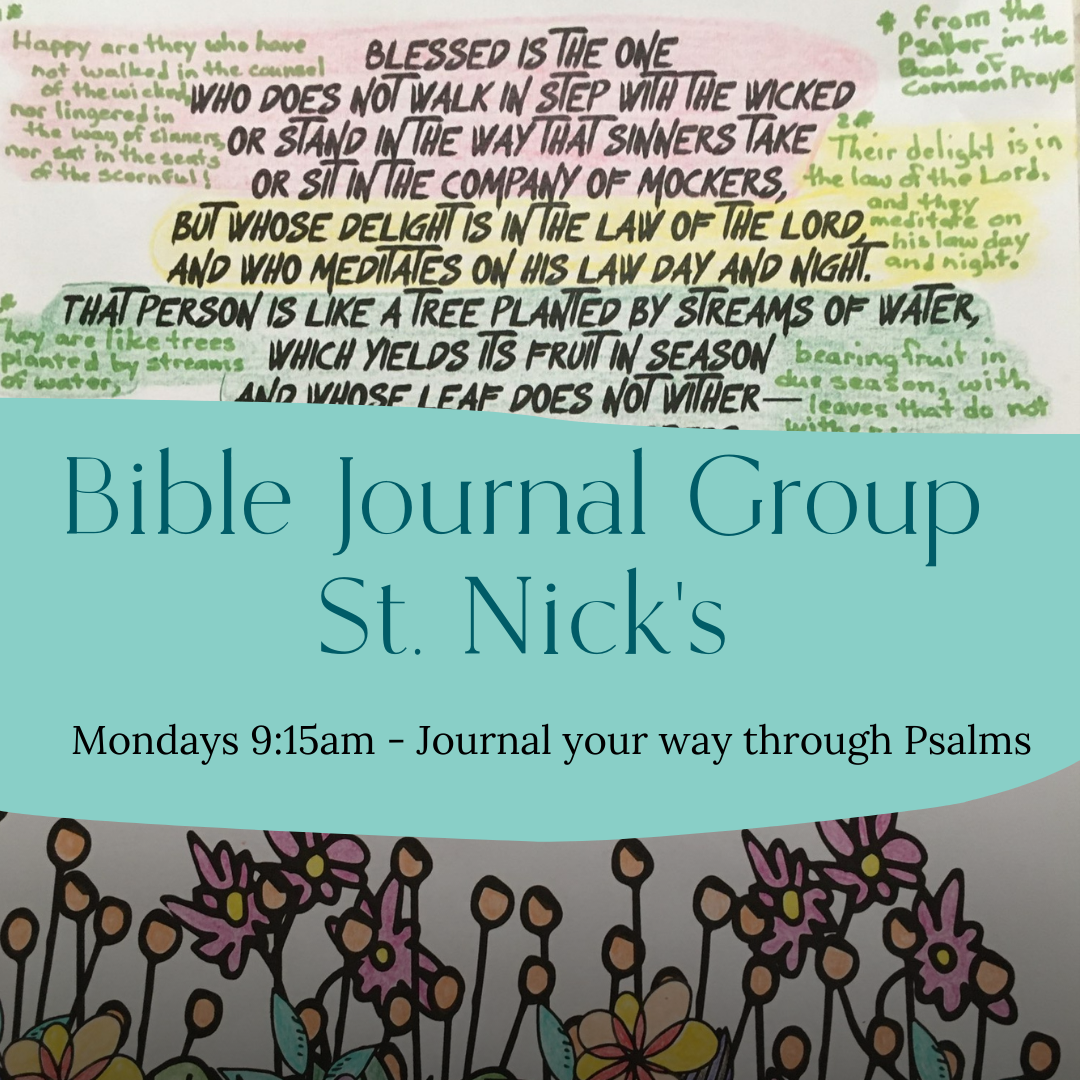 Happy are they who have
not walked in the counsel
of the wicked,
nor lingered in
the way of sinners,
nor sat in the seats
of the scornful!
* from the
Psalter in the
Book of
Common Prayer
BLESSED IS THE ONE
WHO DOES NOT WALK IN STEP WITH THE WICKED
OR STAND IN THE WAY THAT SINNERS TAKE
OR SIT IN THE COMPANY OF MOCKERS,
BUT WHOSE DELIGHT IS IN THE LAW OF THE LORD,
AND WHO MEDITATES ON HIS LAW DAY AND NIGHT.
2*
Their delight is in
the law of the Lord,
and they
meditate on
his law day
and night.
THAT PERSON IS LIKE A TREE PLANTED BY STREAMS OF WATER,
WHICH YIELDS ITS FRUIT IN SEASON
AND WHOSE LEAF DOES NOT WITHER—
They are like trees
planted by streams
of water,
bearing fruit in
due season, with
leaves that do not
Bible Journal Group
St. Nick's
Mondays 9:15am - Journal your way through Psalms